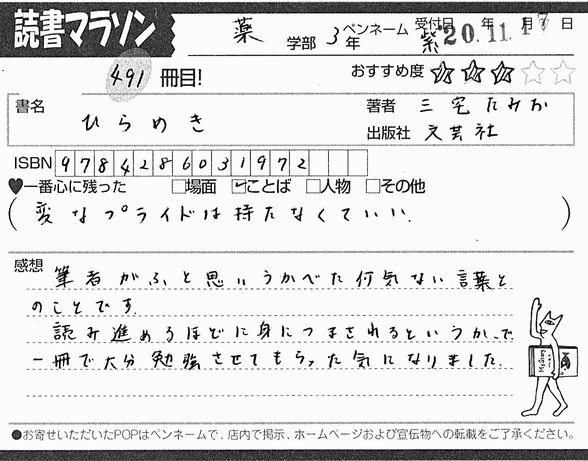 読書マラソン
薬 学部 3年 ペンネーム 紫 受付日 年 月 日
'20.11.17
491 冊目!
おすすめ度 ☆☆☆☆☆
書名 ひらめき
著者 三宅たみか
出版社 文芸社
ISBN 9784286031972
♥一番心に残った □場面 ☑ことば □人物 □その他
(変なプライドは持たなくていい.)
感想 筆者がふと思いうかべた何気ない言葉と
のことです.
読み進めるほどに身につまされるというか、で
一冊で大分勉強させてもらった気になりました.
●お寄せいただいたPOPはペンネームで、店内で掲示、ホームページおよび宣伝物への転載をご了承ください。